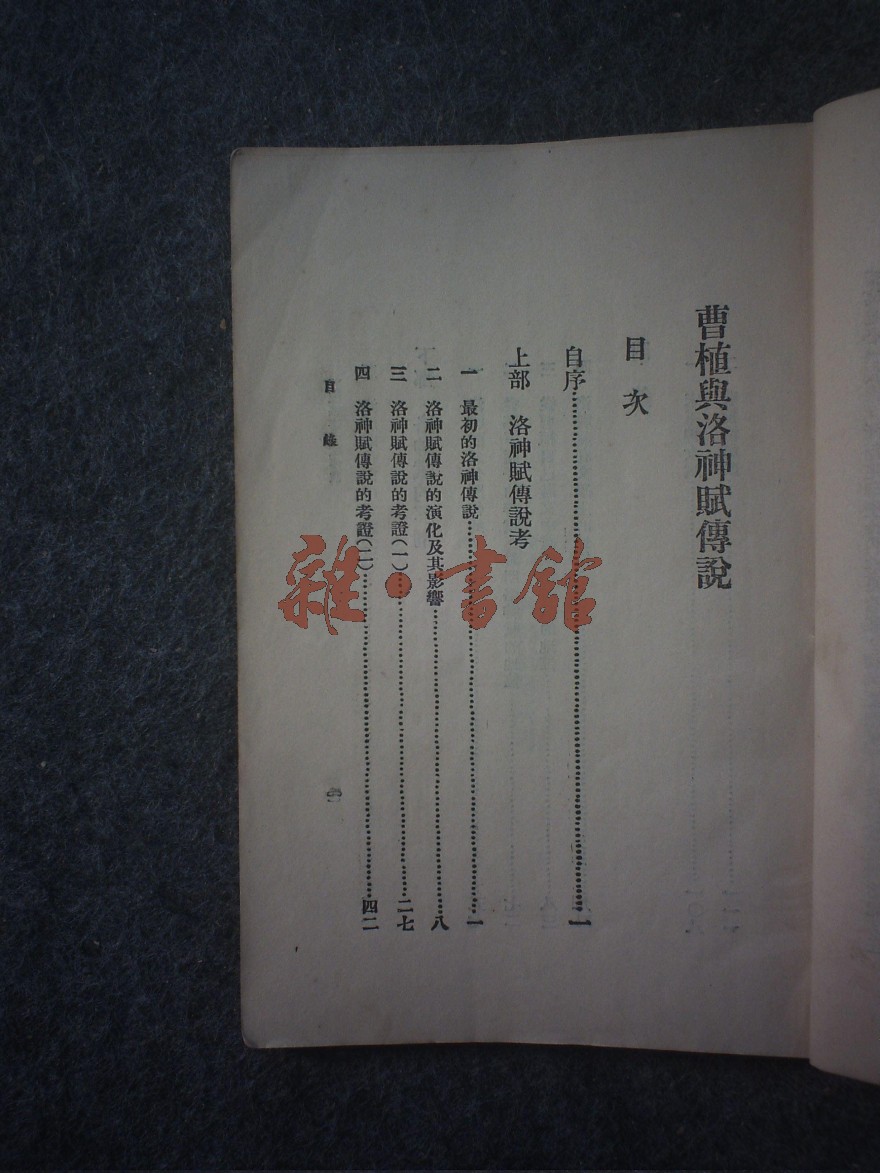 曹植與洛神賦傳說
目次
自序……一
上部 洛神賦傳說考
一 最初的洛神傳說……一
二 洛神賦傳說的演化及其影響……八
三 洛神賦傳說的考證(一)……二七
四 洛神賦傳說的考證(二)……四二
目錄
雜·書館